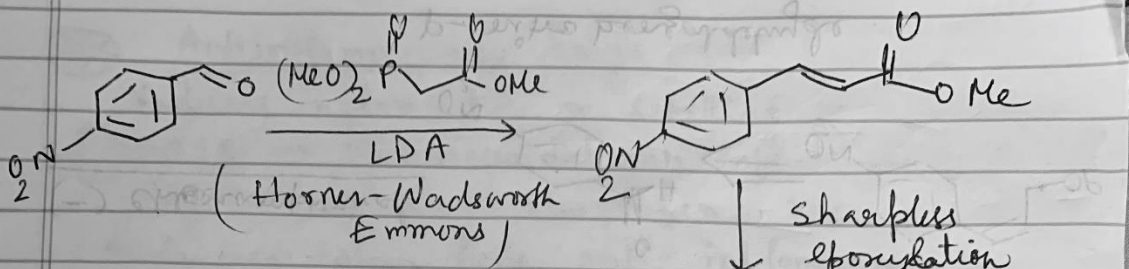 O O O
(MeO)2 P OMe
O
O2N
LDA
(Horner-Wadsworth
Emmons)
O Me
O2N
Sharpless
epoxidation